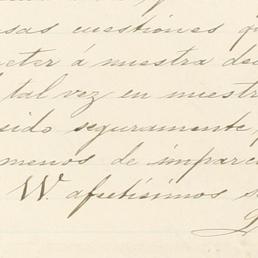 sas cuestiones q
cter á nuestra de
tal vez en nuestr
sido seguramente,
menos de imparc
W. afectísimos s